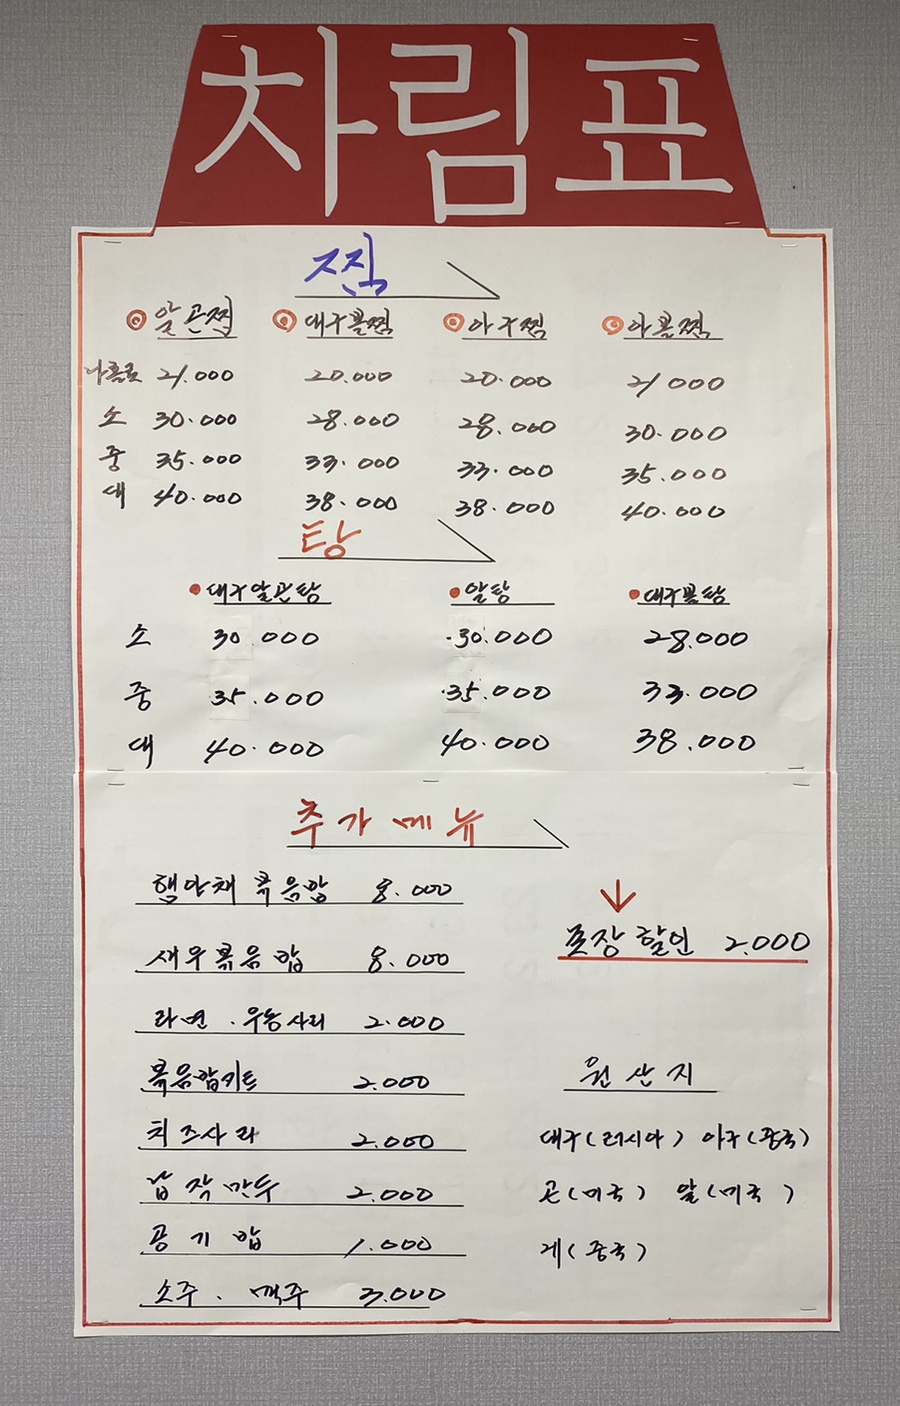 차림표
찜
알곤찜 대구뽈찜 아구찜 아뽈찜
나홀로 21.000 20.000 20.000 21 000
소 30.000 28.000 28.000 30.000
중 35.000 33.000 33.000 35.000
대 40.000 38.000 38.000 40.000
탕
대구알곤탕 알탕 대구뽈탕
소 30.000 30.000 28.000
중 35.000 35.000 33.000
대 40.000 40.000 38.000
추가메뉴
햄야채 볶음밥 8.000
포장 할인 2.000
새우볶음밥 8.000
라면 . 우동사리 2.000
볶음밥키트 2.000
원산지
치즈사리 2.000
대구(러시아) 아구(중국)
납작만두 2.000
곤(미국) 알(미국)
공기밥 1.000
게(중국)
소주 . 맥주 3.000